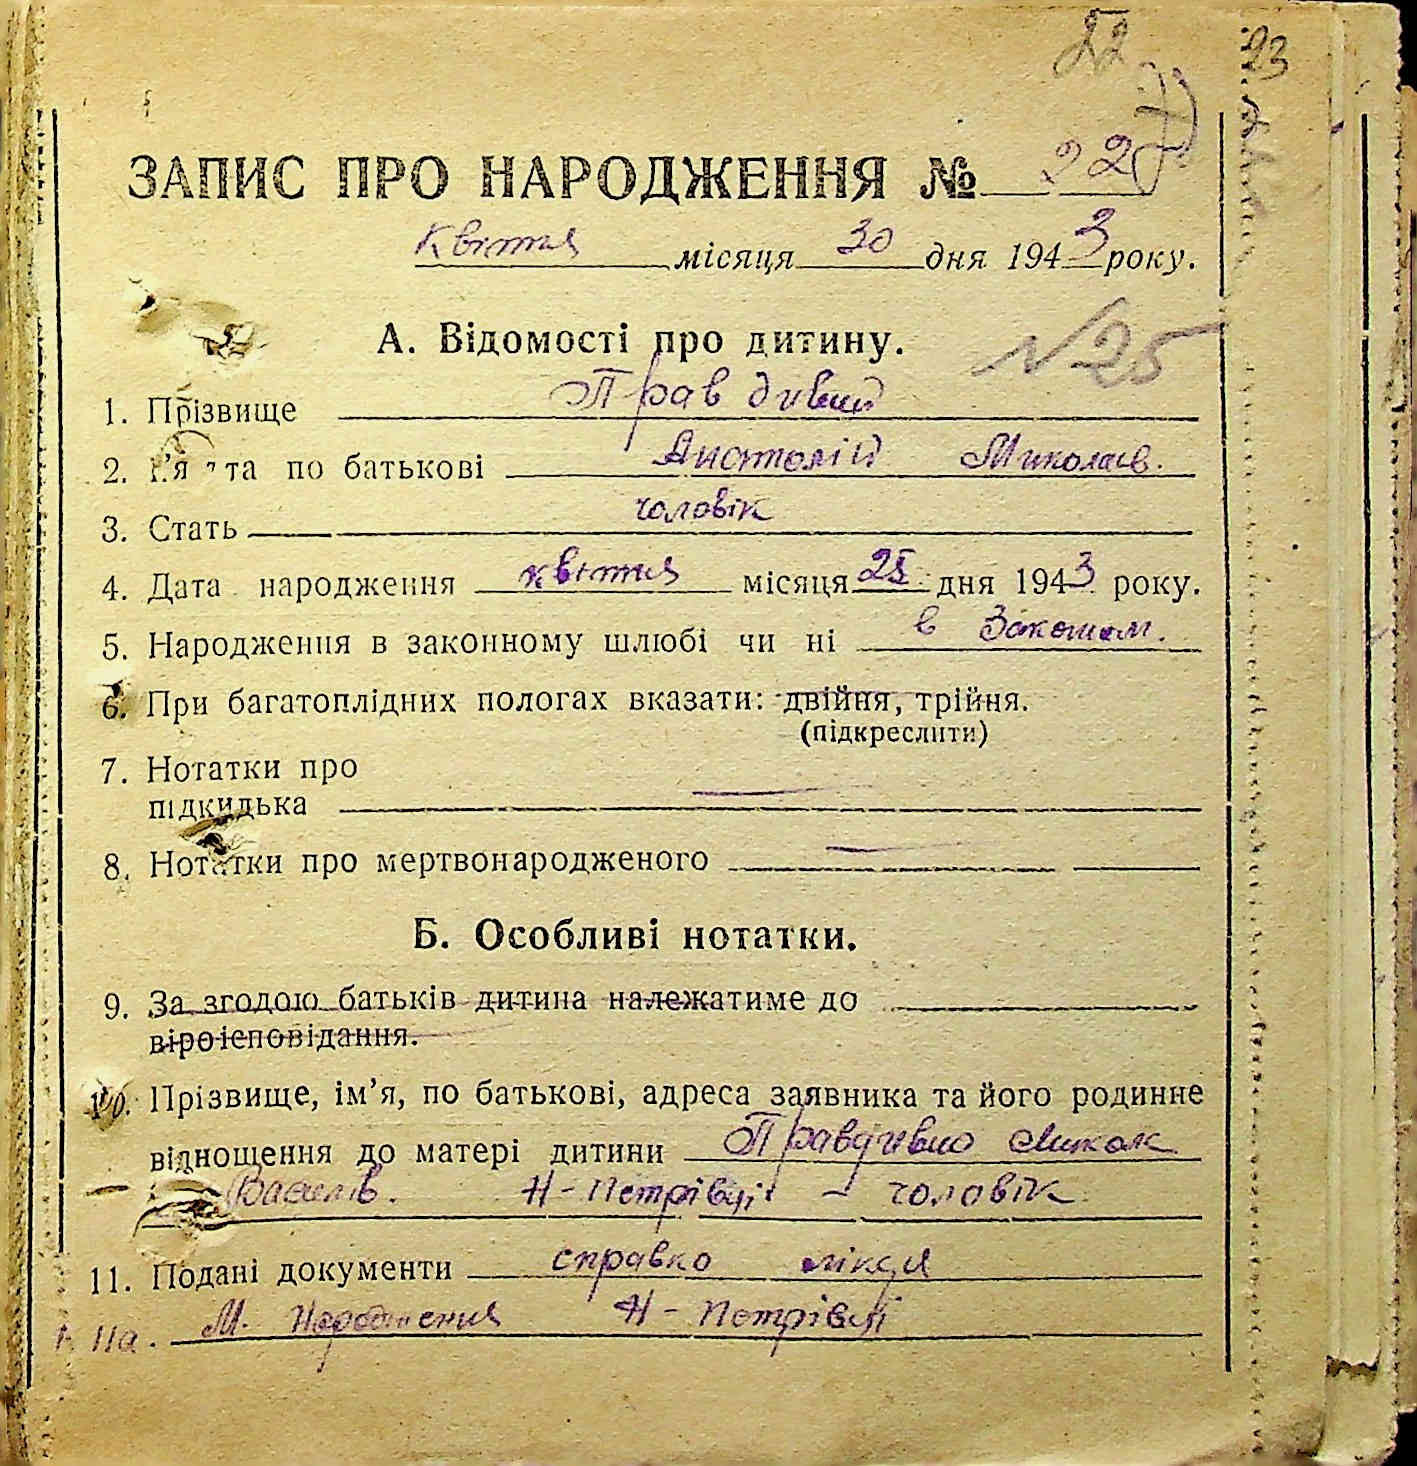 22
23
ЗАПИС ПРО НАРОДЖЕННЯ № 22
квітня місяця 30 дня 1943 року.
А. Відомості про дитину.
№25
1. Прізвище Правдивий
2. І'я та по батькові Анатолій Миколаєв.
3. Стать чоловік
4. Дата народження квітня місяця 25 дня 1943 року.
5. Народження в законному шлюбі чи ні в Законом.
6. При багатоплідних пологах вказати: двійня, трійня.
(підкреслити)
7. Нотатки про
підкидька
8. Нотатки про мертвонародженого
Б. Особливі нотатки.
9. За згодою батьків дитина належатиме до
віроісповідання.
10. Прізвище, ім'я, по батькові, адреса заявника та його родинне
відношення до матері дитини Правдивий Микола
Василів. Н-Петрівці - чоловік
11. Подані документи справка лікця
11а. М. Народження Н-Петрівці